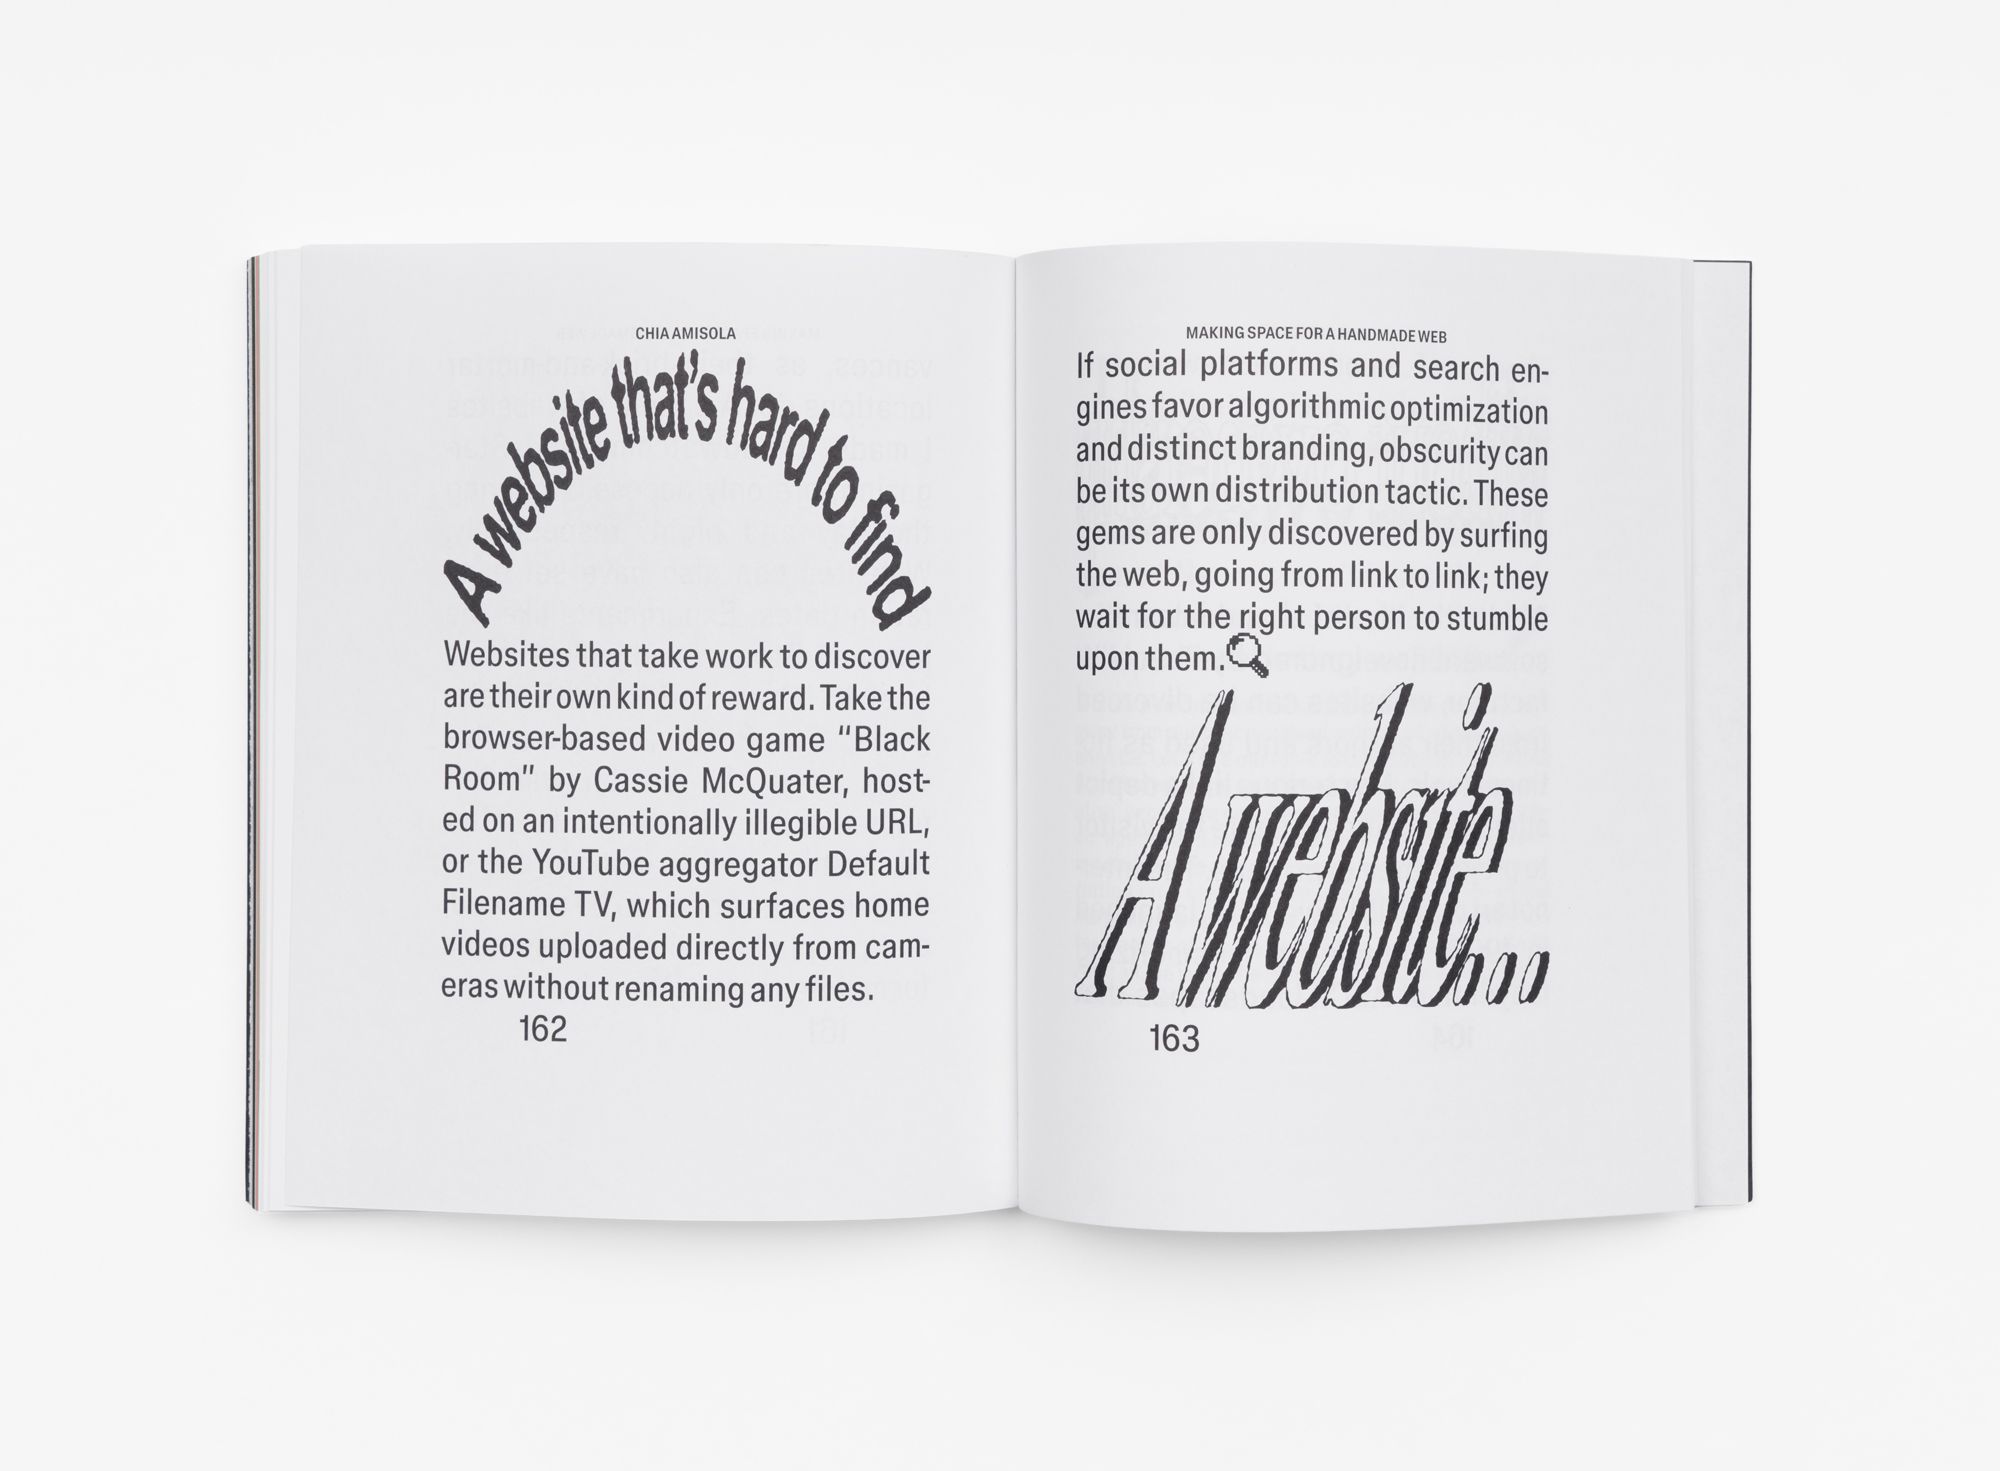 CHIA AMISOLA
A website that's hard to find
Websites that take work to discover
are their own kind of reward. Take the
browser-based video game “Black
Room” by Cassie McQuater, host-
ed on an intentionally illegible URL,
or the YouTube aggregator Default
Filename TV, which surfaces home
videos uploaded directly from cam-
eras without renaming any files.
162
MAKING SPACE FOR A HANDMADE WEB
If social platforms and search en-
gines favor algorithmic optimization
and distinct branding, obscurity can
be its own distribution tactic. These
gems are only discovered by surfing
the web, going from link to link; they
wait for the right person to stumble
upon them.
A website...
163